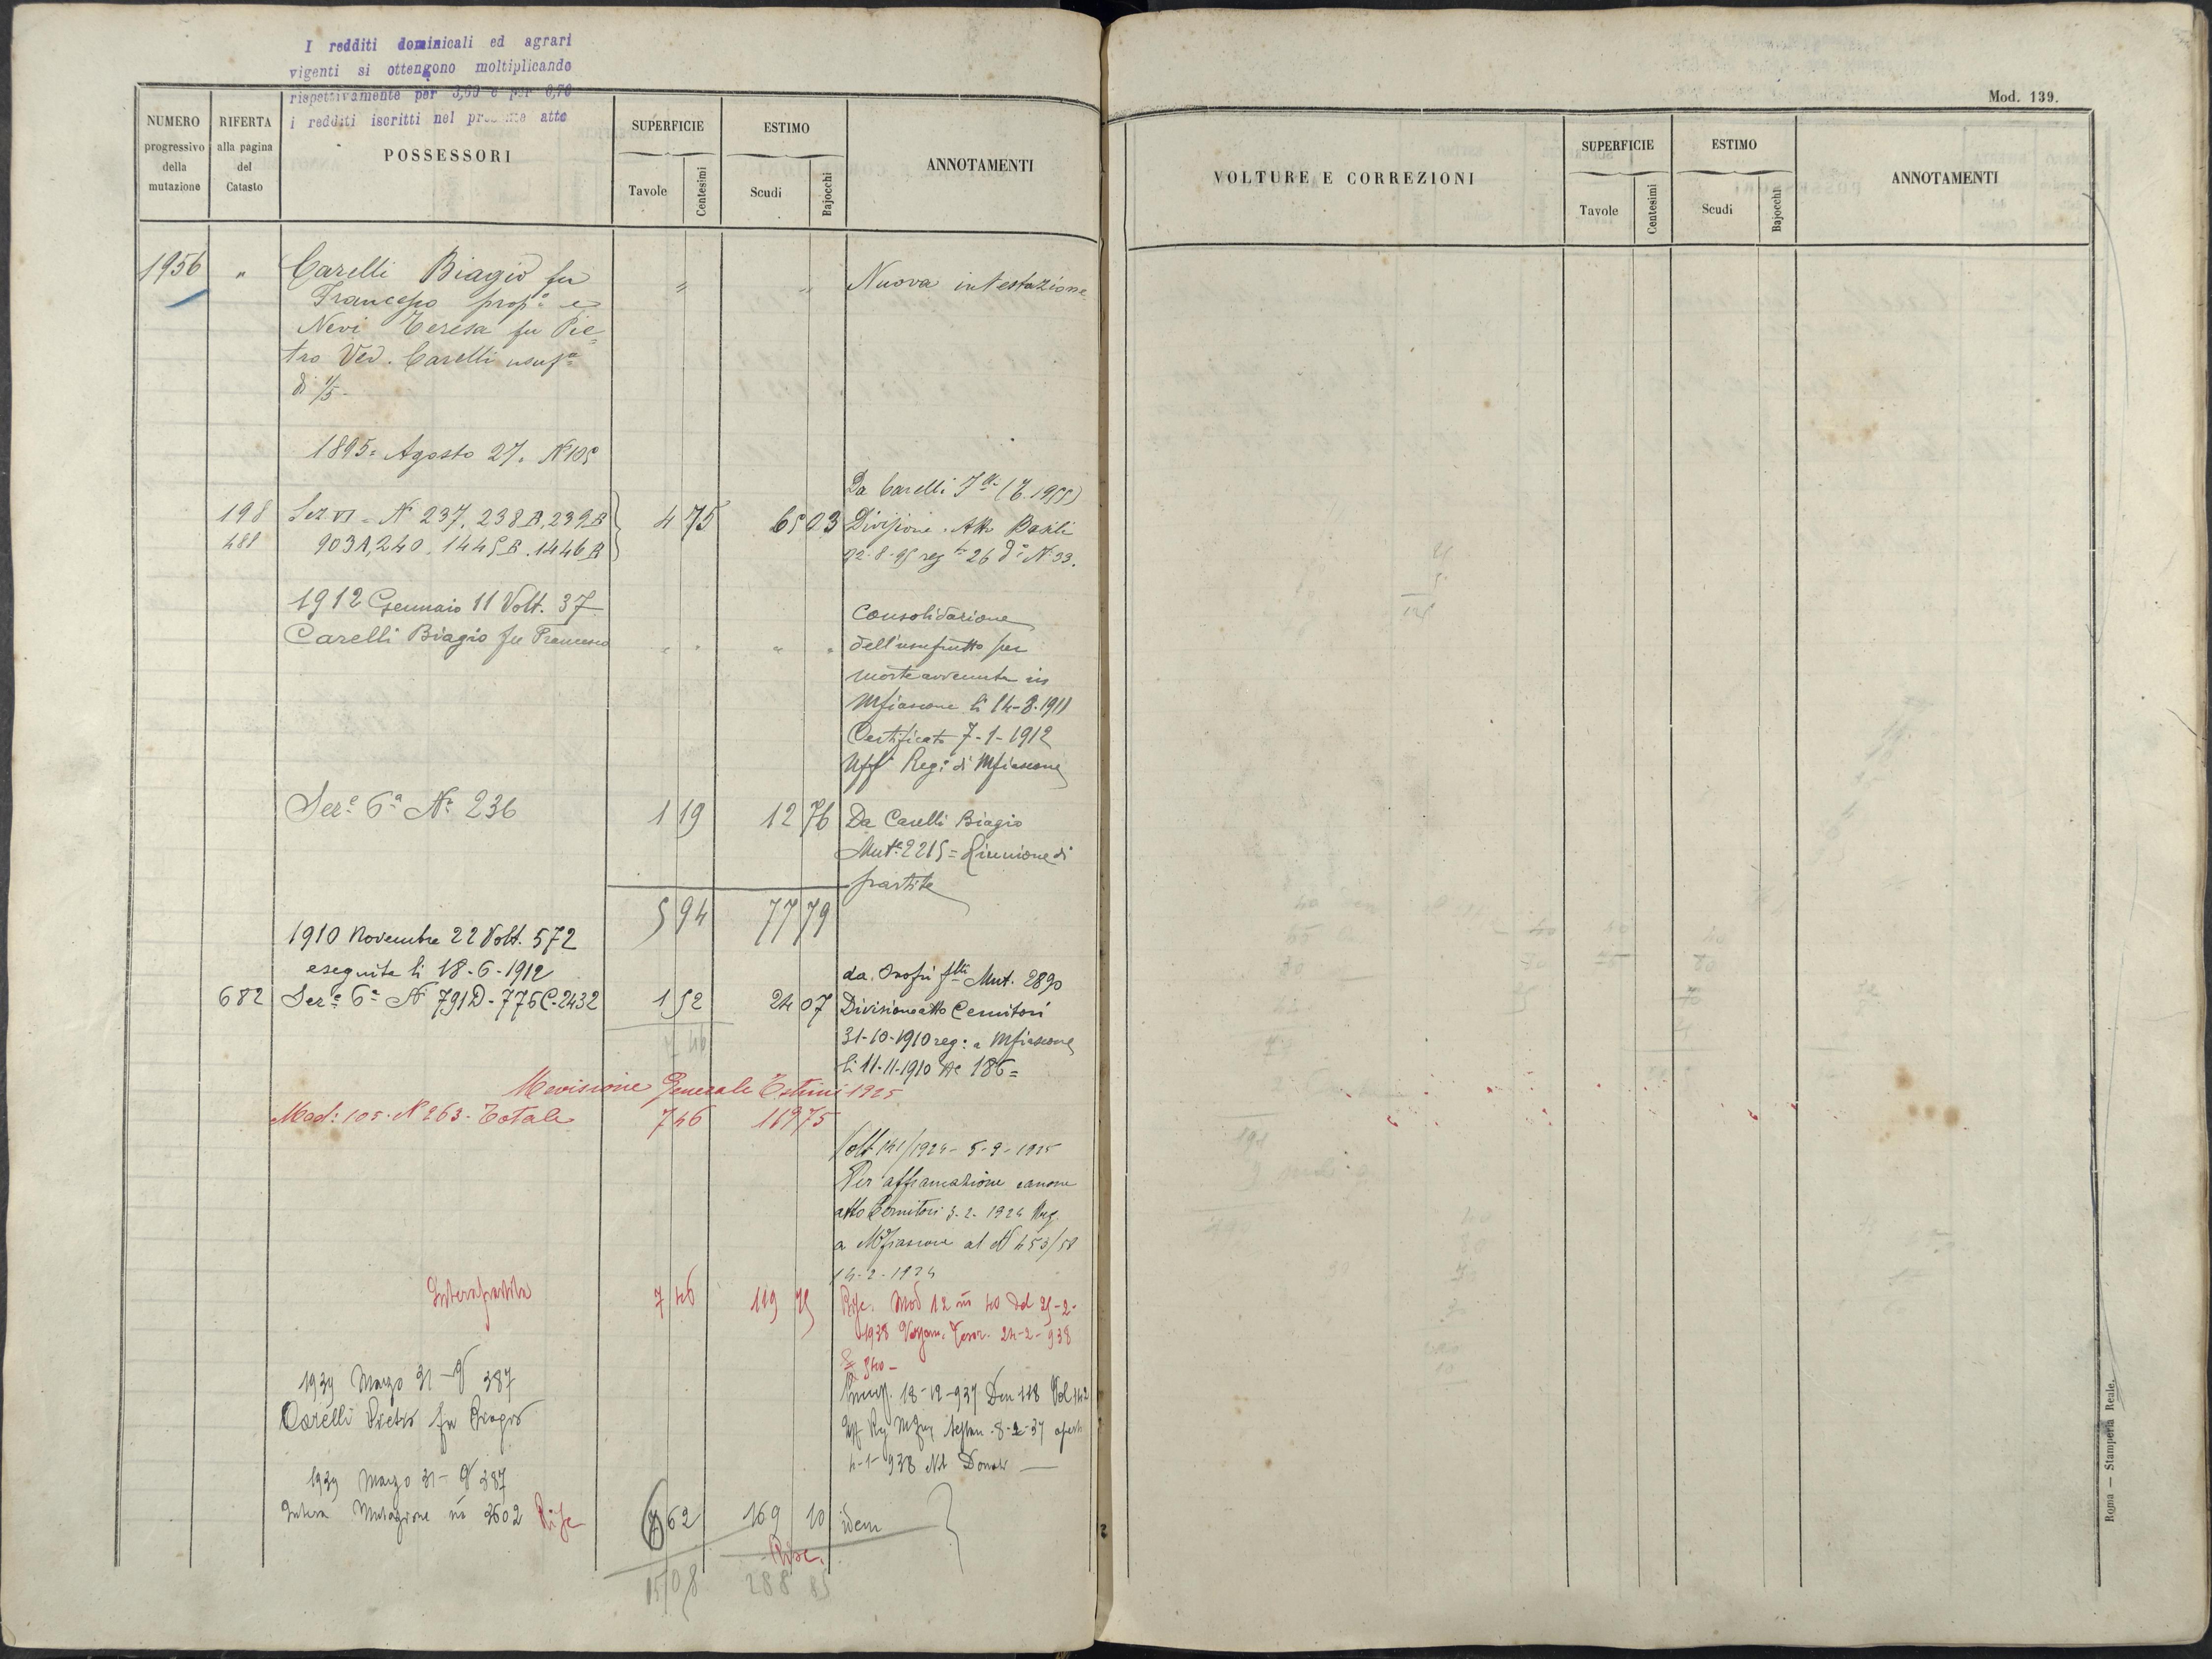 I redditi dominicali ed agrari
vigenti si ottengono moltiplicando
rispettivamente per 3,60 e per 6,70
i redditi iscritti nel presente atto
NUMERO progressivo della mutazione
RIFERTA alla pagina del Catasto
POSSESSORI
SUPERFICIE
Tavole Centesimi
ESTIMO
Scudi Bajocchi
ANNOTAMENTI
1956 " Carelli Biagio fu " " Nuova intestazione
Francesco prop.º e
Nevi Teresa fu Pie=
tro Ved. Carelli usuf.ª
di 1/5-
1895= Agosto 27. Nº 105
Da Carelli (T. 1955)
198 Sez VI = Nº 237, 238B, 239B 4 75 65 03 Divisione. Atto Basili
488 903A, 240. 1445B. 1446B 22-8-95 reg.to 26 dº Nº 33.
1912 Gennaio 11 Volt. 37 Consolidazione
Carelli Biagio fu Francesco " " " " dell'usufrutto per
morte avvenuta in
Mfiascone li 14-8-1911
Certificato 7-1-1912
Uffº Regº di Mfiascone
Sezº 6ª Nº 236 1 19 12 76 Da Carelli Biagio
Mutº 2215 = Riunione di
partite
5 94 77 79
1910 Novembre 22 Volt. 572
eseguita li 18-6-1912 da Onofri flli Mut. 2890
682 Sezº 6ª Nº 791D-776C-2432 1 52 24 07 Divisione atto Cernitori
7 46 31-10-1910 reg: a Mfiascone
li 11-11-1910 Nº 186=
Revisione Generale Estimi 1925
Mod: 105. Nº 263. Totale 7 46 119 75
Volt 141/1924 - 5-9-1925
Per affrancazione canone
atto Cernitori 3-2-1924 Reg.
a Mfiascone al Nº 453/58
14-2-1924
Intera partita 7 46 119 75 Rife. Mod 12 nº 40 del 25-2-
1938 Tesor. 24-2-938
1939 Marzo 31 - Nº 387
18-12-937 Den 118 Vol 142
Carelli Pietro fu Biagio
8-2-37
4-1-938 Not Donati
1939 Marzo 31 - Nº 387
Intera Mutazione nº 3602 Rife 7 62 169 10 idem
Rise.
15 08 288 85
Mod. 139.
VOLTURE E CORREZIONI
SUPERFICIE
Tavole Centesimi
ESTIMO
Scudi Bajocchi
ANNOTAMENTI
Roma — Stamperia Reale.